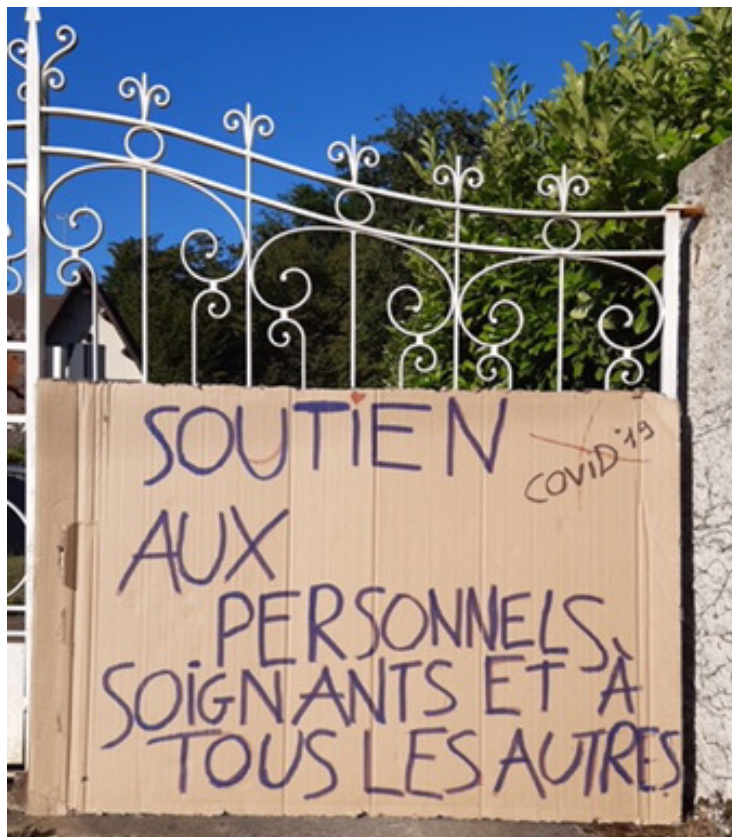 SOUTIEN
COVID-19
AUX
PERSONNELS
SOIGNANTS ET À
TOUS LES AUTRES